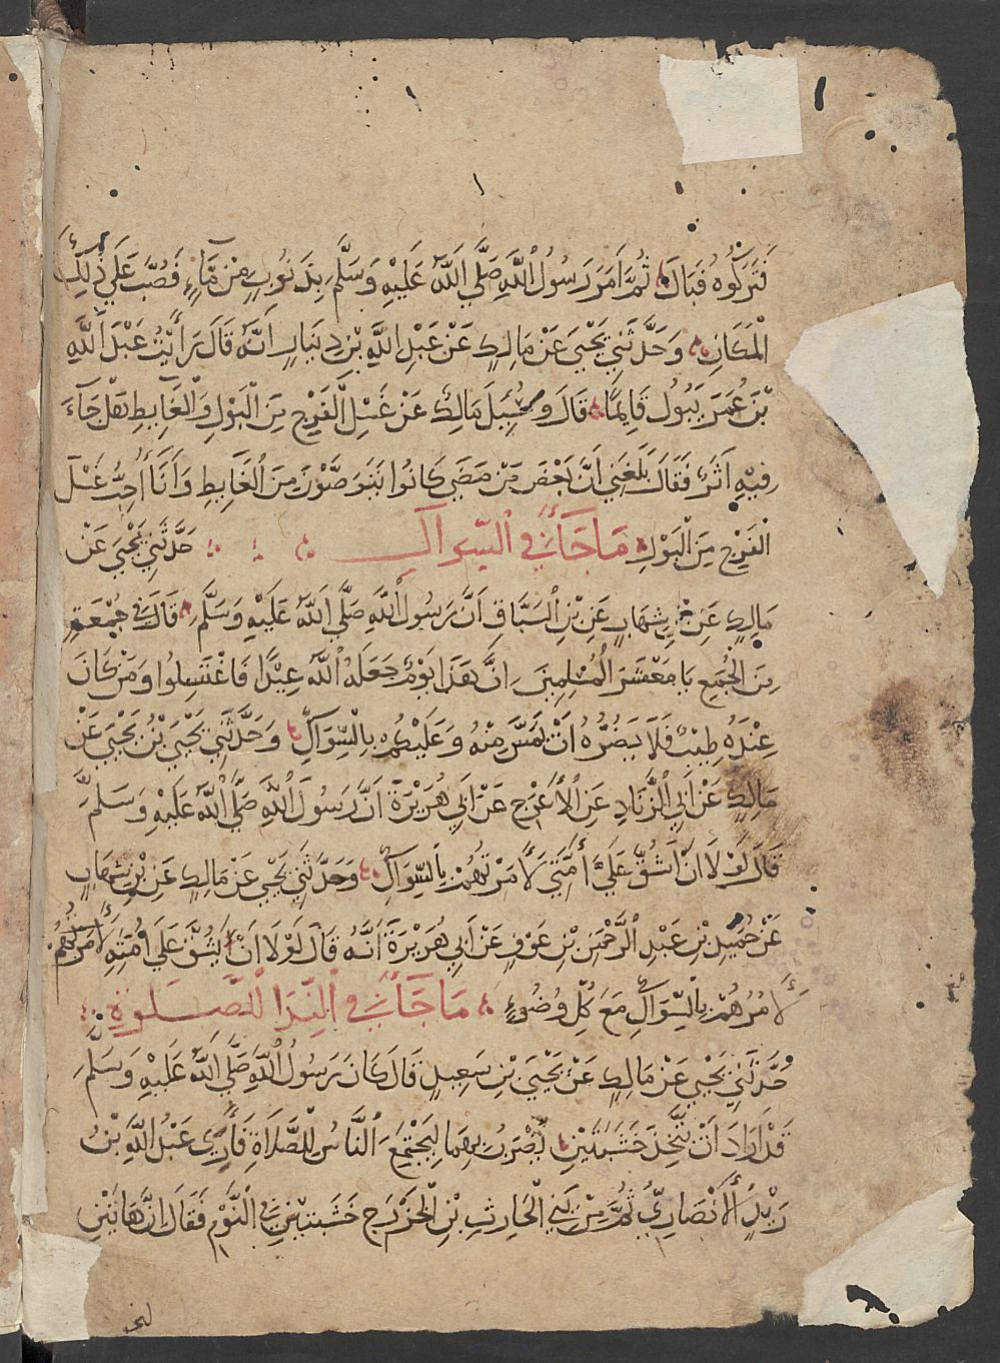 فَتَرَكُوهُ فَبَالَ ثُمَّ أَمَرَ رَسُولُ اللَّهِ صَلَّي اللَّهُ عَلَيْهِ وَسَلَّمَ بِذَنُوبٍ مِنْ مَّاءٍ فَصُبَّ عَلَي ذَلِكَ
الْمَكَانِ وَحَدَّثَنِي يَحْيَي عَنْ مَالِكٍ عَنْ عَبْدِ اللَّهِ بْنِ دِينَارٍ اَنَّهُ قَالَ رَأَيْتُ عَبْدَ اللَّهِ
بْنَ عُمَرَ يَبُولُ قَايِمًا قَالَ وَسُيِلَ مَالِكٌ عَنْ غَسْلِ الْفَرْجِ مِنَ الْبَوْلِ وَالْغَايِطِ هَلْ جَآءَ
فِيهِ اَثَرٌ فَقَالَ بَلَغَنِي اَنَّ بَعْضَ مَنْ مَضَي كَانُوا يَتَوَضَّوْنَ مِنَ الْغَايِطِ وَأَنَا أُحِبُّ غَسْلَ
الْفَرْجِ مِنَ الْبَوْلِ مَا جَآءَ فِي السِّوَاكِ حَدَّثَنِي يَحْيَي عَنْ
مَالِكٍ عَنِ بْنِ شِهَابٍ عَنِ بْنِ السَّبَّاقِ اَنَّ رَسُولَ اللَّهِ صَلَّي اللَّهُ عَلَيْهِ وَسَلَّمَ قَالَ فِي جُمْعَةٍ
مِنَ الْجُمَعِ يَا مَعْشَرَ الْمُسْلِمِينَ اِنَّ هَذَا يَوْمٌ جَعَلَهُ اللَّهُ عِيْدًا فَاغْتَسِلُوا وَمَنْ كَانَ
عِنْدَهُ طِيبٌ فَلَا يَضُرُّهُ اَنْ يَمَسَّ مِنْهُ وَعَلَيْكُمْ بِالسِّوَاكِ وَحَدَّثَنِي يَحْيَي بْنُ يَحْيَي عَنْ
مَالِكٍ عَنْ أَبِي الزِّنَادِ عَنِ الْأَعْرَجِ عَنْ اَبِي هُرَيْرَةَ اَنَّ رَسُولَ اللَّهِ صَلَّي اللَّهُ عَلَيْهِ وَسَلَّمَ
قَالَ لَوْلَا اَنْ اَشُقَّ عَلَي أُمَّتِي لَأَمَرْتُهُمْ بِالسِّوَاكِ وَحَدَّثَنِي يَحْيَي عَنْ مَالِكٍ عَنِ بْنِ شِهَابٍ
عَنْ حُمَيْدِ بْنِ عَبْدِ الرَّحْمَنِ بْنِ عَوْفٍ عَنْ أَبِي هُرَيْرَةَ اَنَّهُ قَالَ لَوْلَا اَنْ يَشُقَّ عَلَي أُمَّتِهِ لَأَمَرَهُمْ
بِالسِّوَاكِ مَعَ كُلِّ وُضُوءٍ مَا جَآءَ فِي النِّدَا لِلصَّلَوةِ
حَدَّثَنِي يَحْيَي عَنْ مَالِكٍ عَنْ يَحْيَي بْنِ سَعِيدٍ قَالَ كَانَ رَسُولُ اللَّهِ صَلَّي اللَّهُ عَلَيْهِ وَسَلَّمَ
قَدْ اَرَادَ اَنْ يَتَّخِذَ خَشَبَتَيْنِ يُضْرَبُ بِهِمَا لِيَجْتَمِعَ النَّاسُ لِلصَّلَاةِ فَأُرِيَ عَبْدُ اللَّهِ بْنُ
زَيْدٍ الْأَنْصَارِيُّ ثُمَّ مِنْ بَنِي الْحَارِثِ بْنِ الْخَزْرَجِ خَشَبَتَيْنِ فِي النَّوْمِ فَقَالَ اِنَّ هَاتَيْنِ